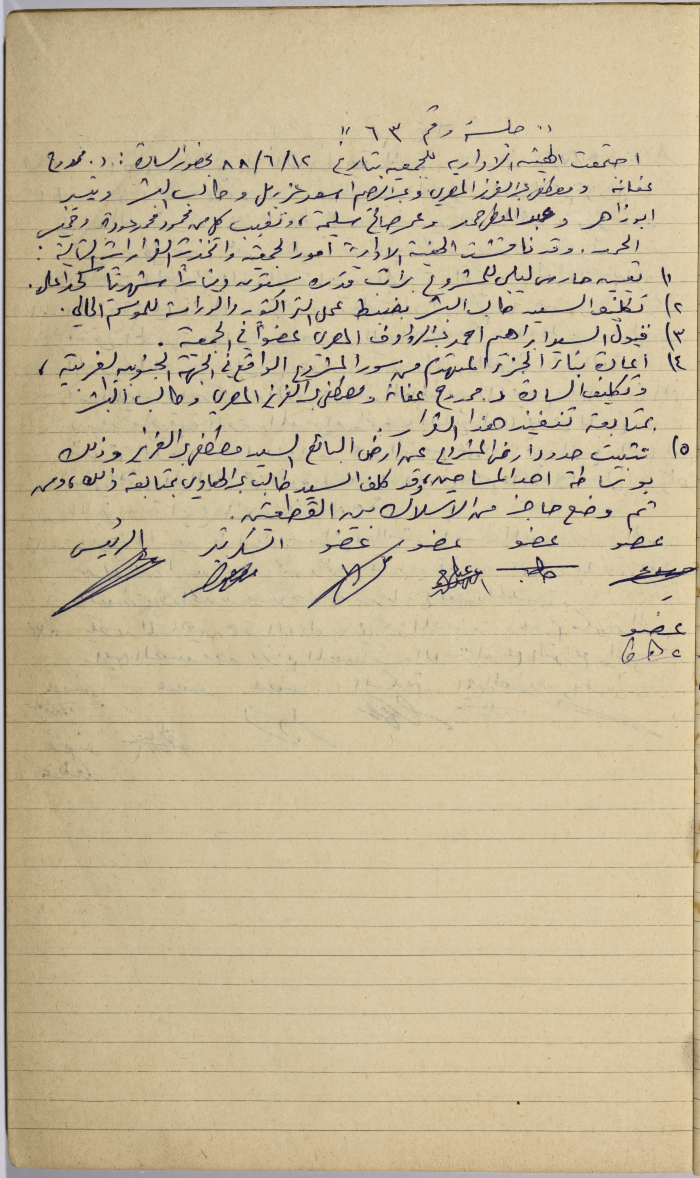 " جلسة رقم ٦٣ "
اجتمعت الهيئة الادارية للجمعية بتاريخ ٨٨/٦/١٢ بحضور السادة : د. ممدوح
عفانة ومصطفى عبدالعزيز المصري وعبدالرحيم اسعد وطالب البشر وتيسير
ابو زاهر وعبد المعطي حمد وعمر صالح سليمة، وتغيب كل من محمود محمد عودة
الحمد. وقد ناقشت الهيئة الادارية أمور الجمعية واتخذت القرارات التالية :
١) تعيين حارس ليلي للمشروع براتب قدره ستون ديناراً شهرياً كحد اعلى.
٢) تكليف السيد طالب البشر بضبط عمل التراكتور والدراسة للموسم الحالي.
٣) قبول السيد ابراهيم احمد عبدالرؤوف المصري عضواً في الجمعية .
٤) اعادة بناء الجزء المتهدم من سور المشروع الواقع في الجهة الجنوبية الغربية ،
وتكليف السادة د. ممدوح عفانة ومصطفى عبدالعزيز المصري وطالب البشر
بمتابعة تنفيذ هذا القرار.
٥) تثبيت حدود ارض المشروع عن ارض البائع السيد مصطفى عبدالعزيز وذلك
بوساطة احد المساحين، وقد كلف السيد طالب عبدالهادي بمتابعة ذلك، ومن
ثم وضع حاجز من الاسلاك بين القطعتين.
عضو عضو عضو عضو السكرتير الرئيس
عضو